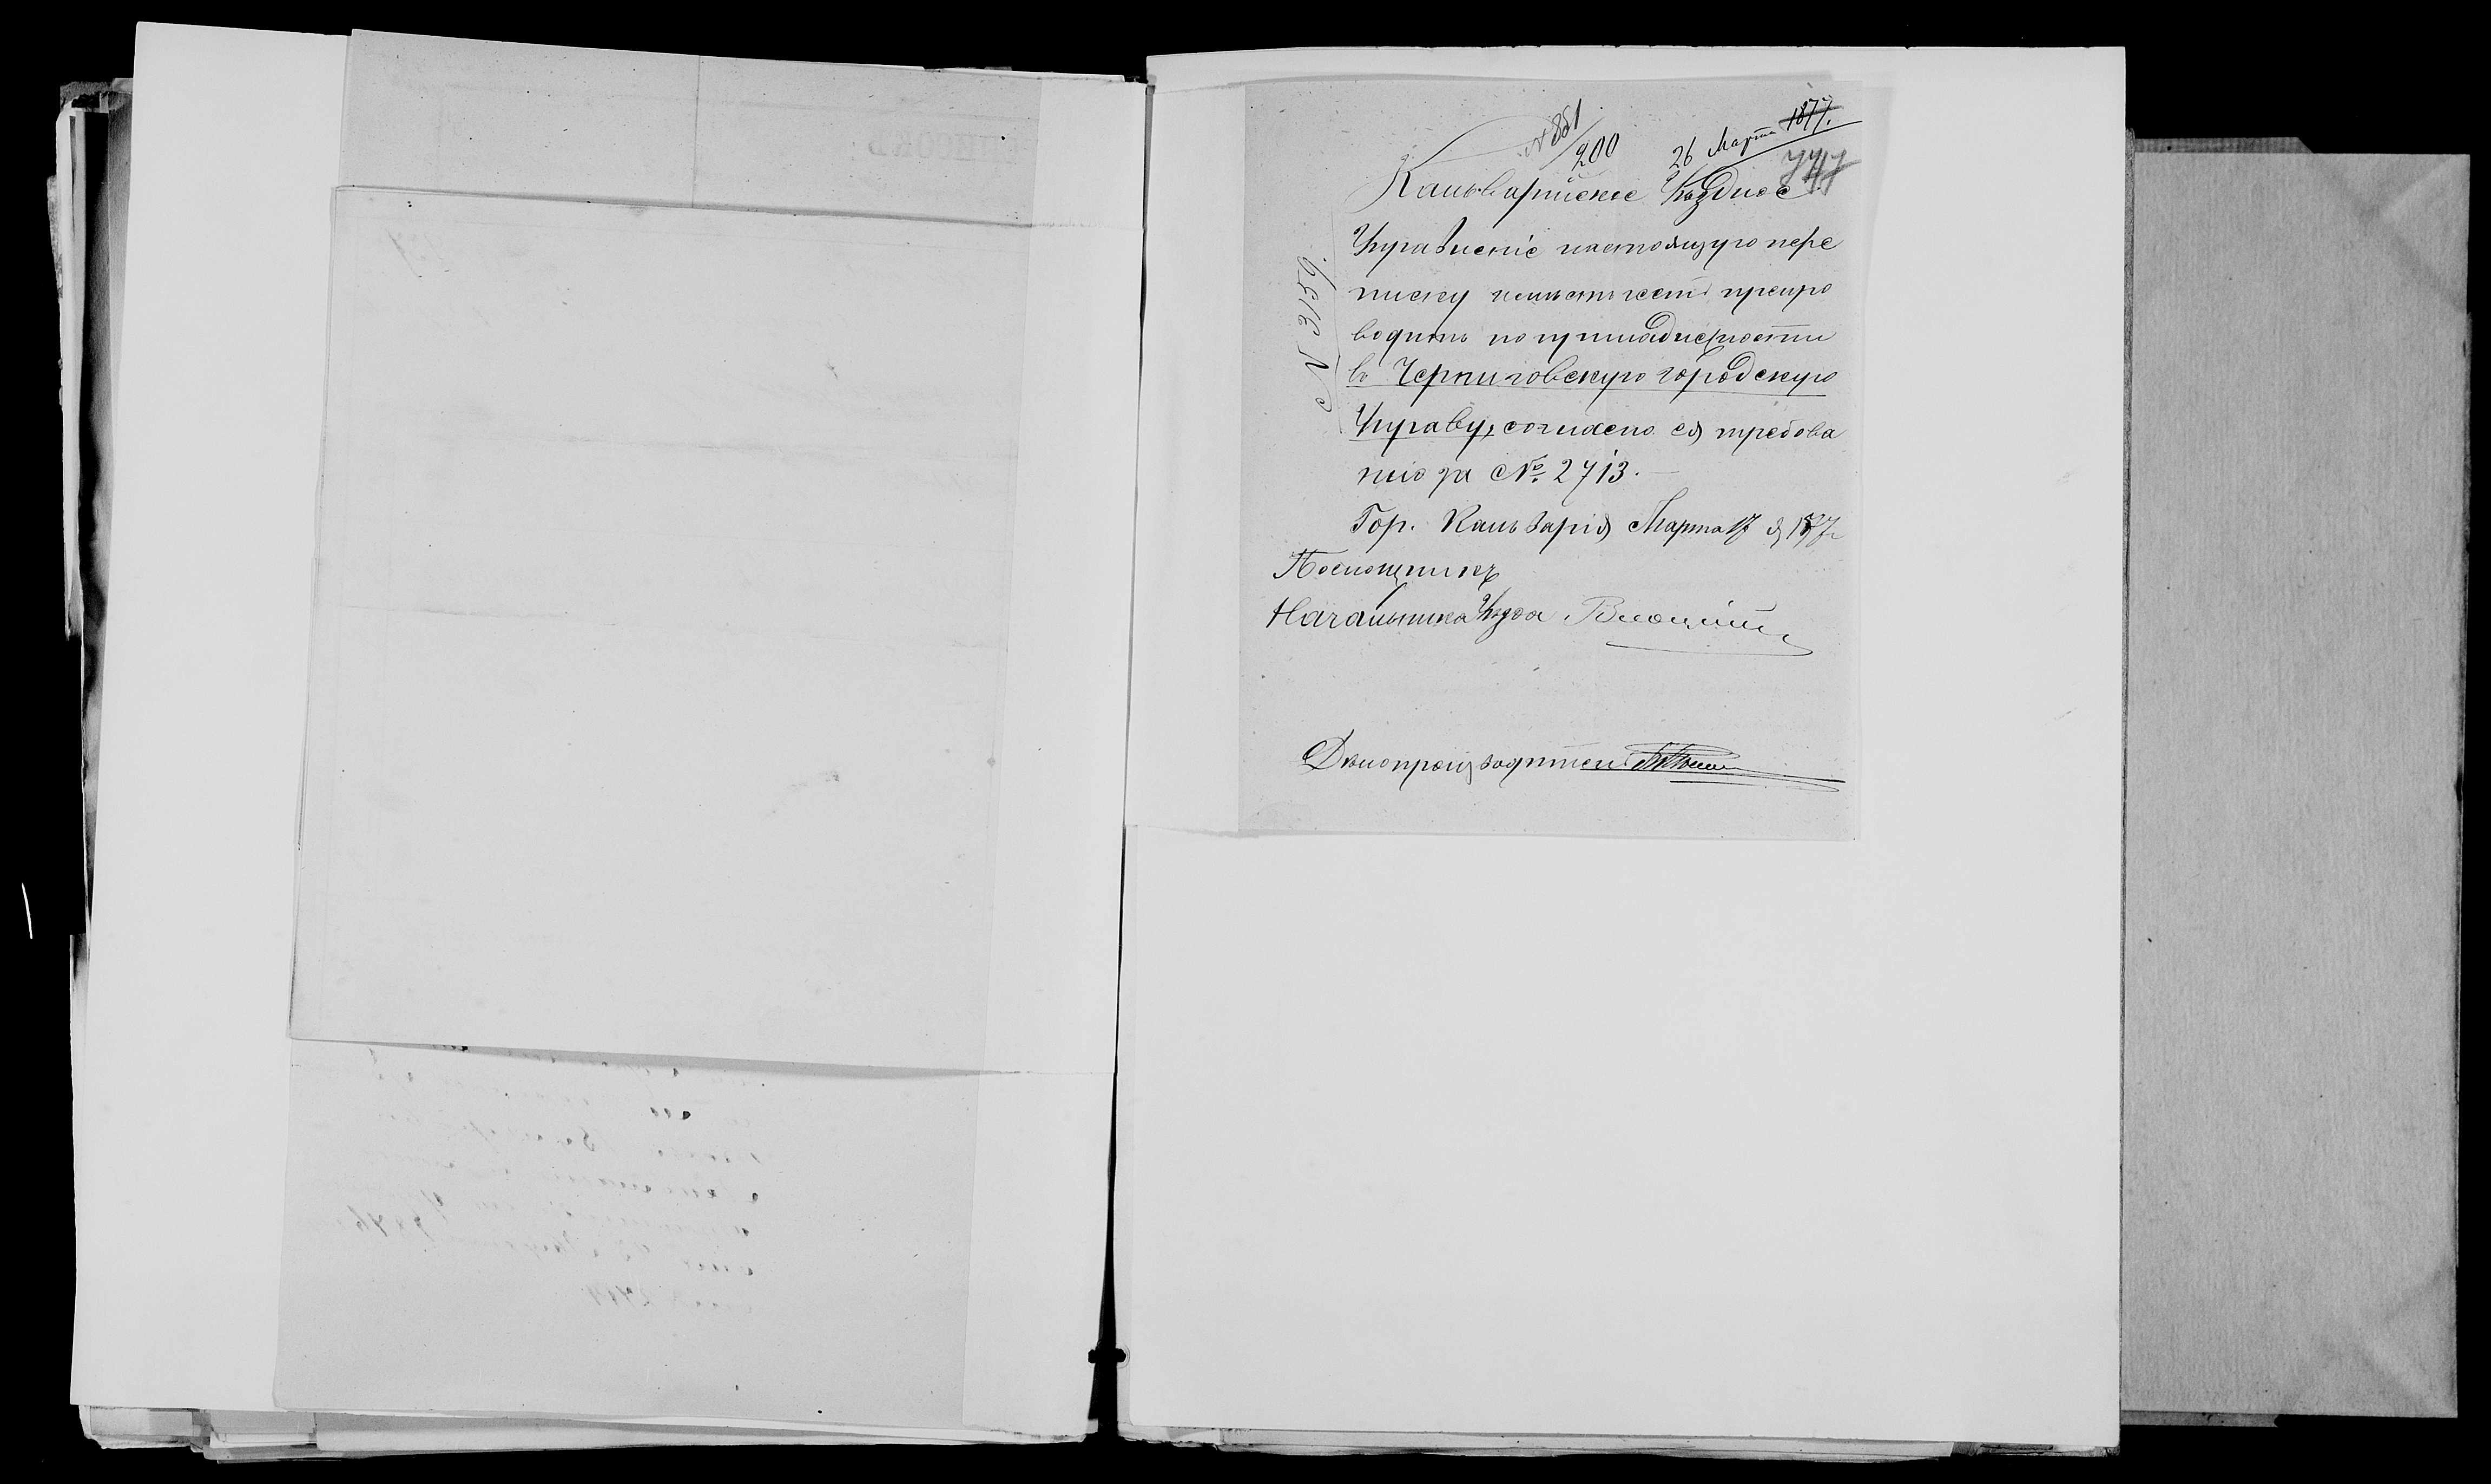 № 881/200
26 Марта 1877.
Кальварійское Уѣздное
Управленіе настоящую пере
писку имѣетъ честь препро
водить по принадлежности
въ Черниговскую городскую
Управу, согласно ея требова
нію за № 2713. —
Гор. Кальварія Марта 17 д 1877
№ 3159.
Помощникъ
Начальника Уѣзда
Дѣлопроизводитель